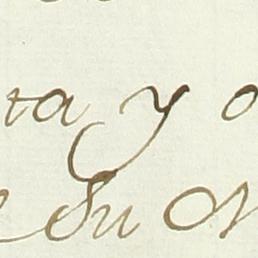 ta y o
e Su M